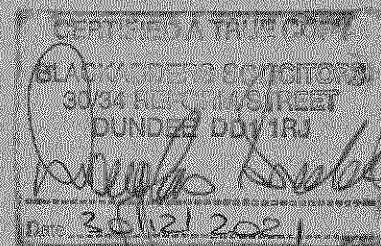 CERTIFIED A TRUE COPY
BLACKADDERS SOLICITORS
30/34 REFORM STREET
DUNDEE DD1 1RJ
Date 30/12/2021